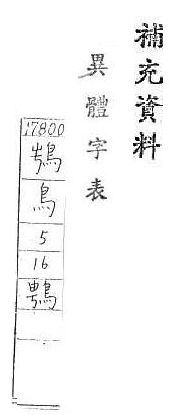 補充資料
異體字表
17800
鳥
5
16